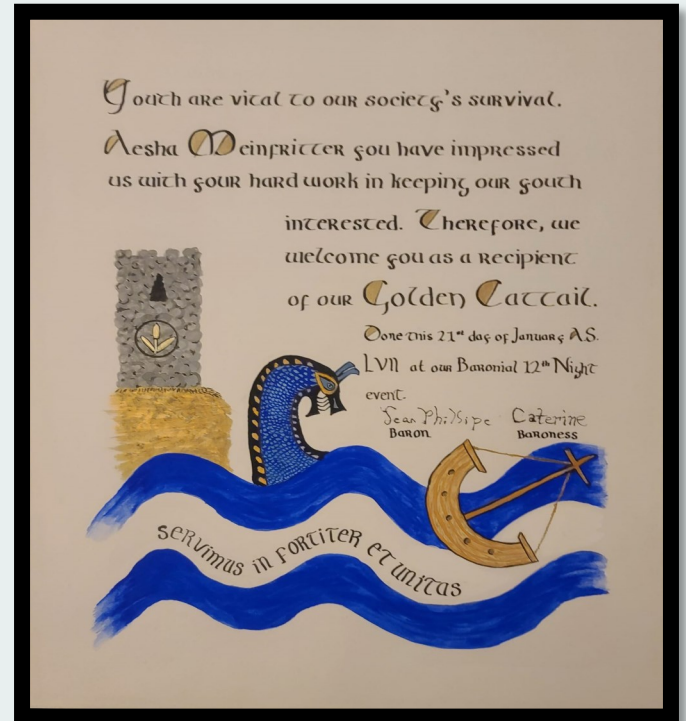 Youth are vital to our society's survival.
Aesha Meinfritter you have impressed
us with your hard work in keeping our youth
interested. Therefore, we
welcome you as a recipient
of our Golden Cattail.
Done this 21st day of January A.S.
LVII at our Baronial 12th Night
event.
Jean Philippe Caterine
Baron Baroness
SERVIMUS IN FORTITER ET UNITAS